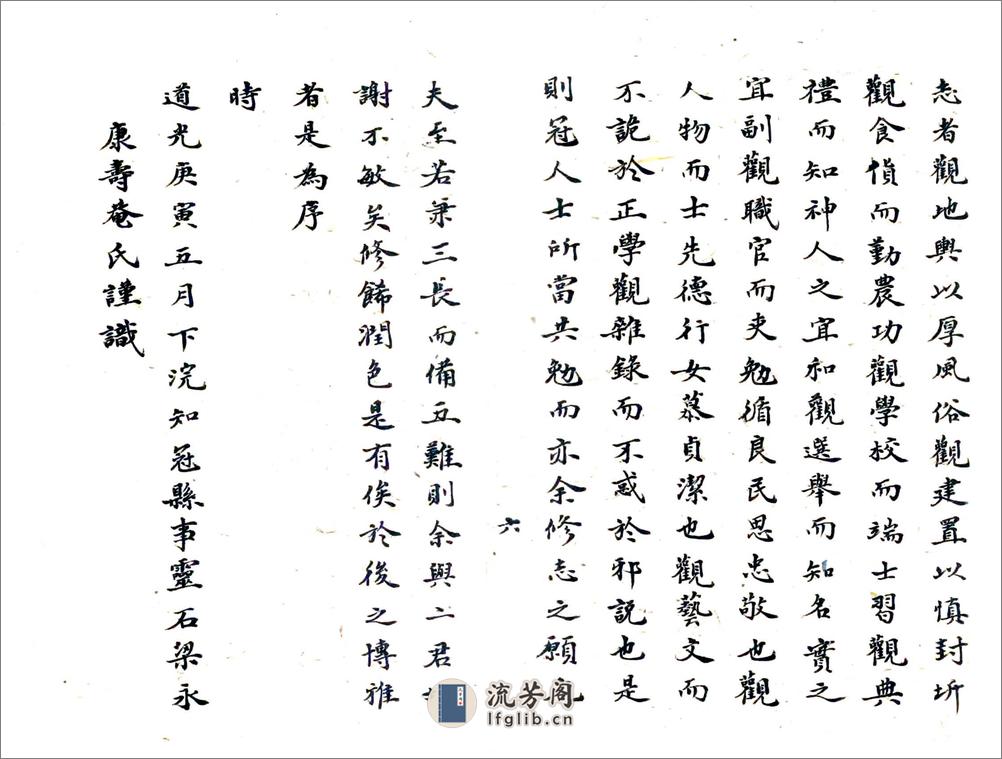 志者觀地輿以厚風俗觀建置以慎封圻
觀食貨而勤農功觀學校而端士習觀典
禮而知神人之宜和觀選舉而知名實之
宜副觀職官而吏勉循良民思忠敬也觀
人物而士先德行女慕貞潔也觀藝文而
不詭於正學觀雜錄而不惑於邪説也是
則冠人士所當共勉而亦余修志之願
六
夫至若兼三長而備五難則余與二君
謝不敏矣修餙潤色是有俟於後之博雅
者是為序
時
道光庚寅五月下浣知冠縣事靈石梁永
康壽菴氏謹識
流芳阁
lfglib.cn